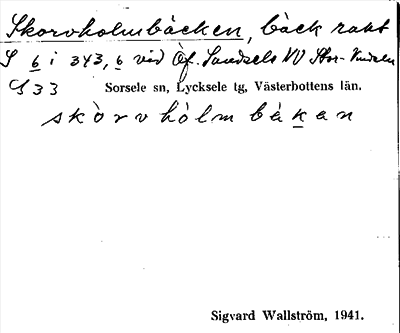 Skorvholmbäcken, bäck rakt
S 6 i 343,6 vid Öf. Sandsele NV Stor-Vindeln
C 33 Sorsele sn, Lycksele tg, Västerbottens län.
skòrvhòlmbäkan
Sigvard Wallström, 1941.